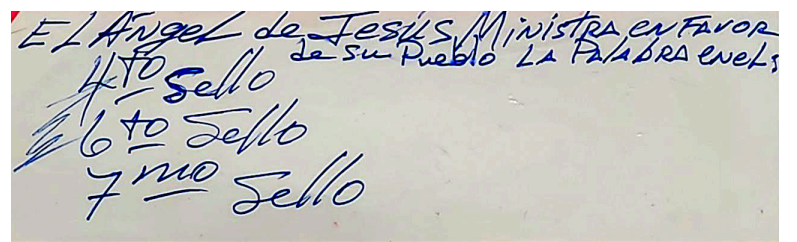 EL Ángel de Jesús, Ministra en Favor
de su Pueblo LA PALABRA en el
4to Sello
6to Sello
7mo Sello